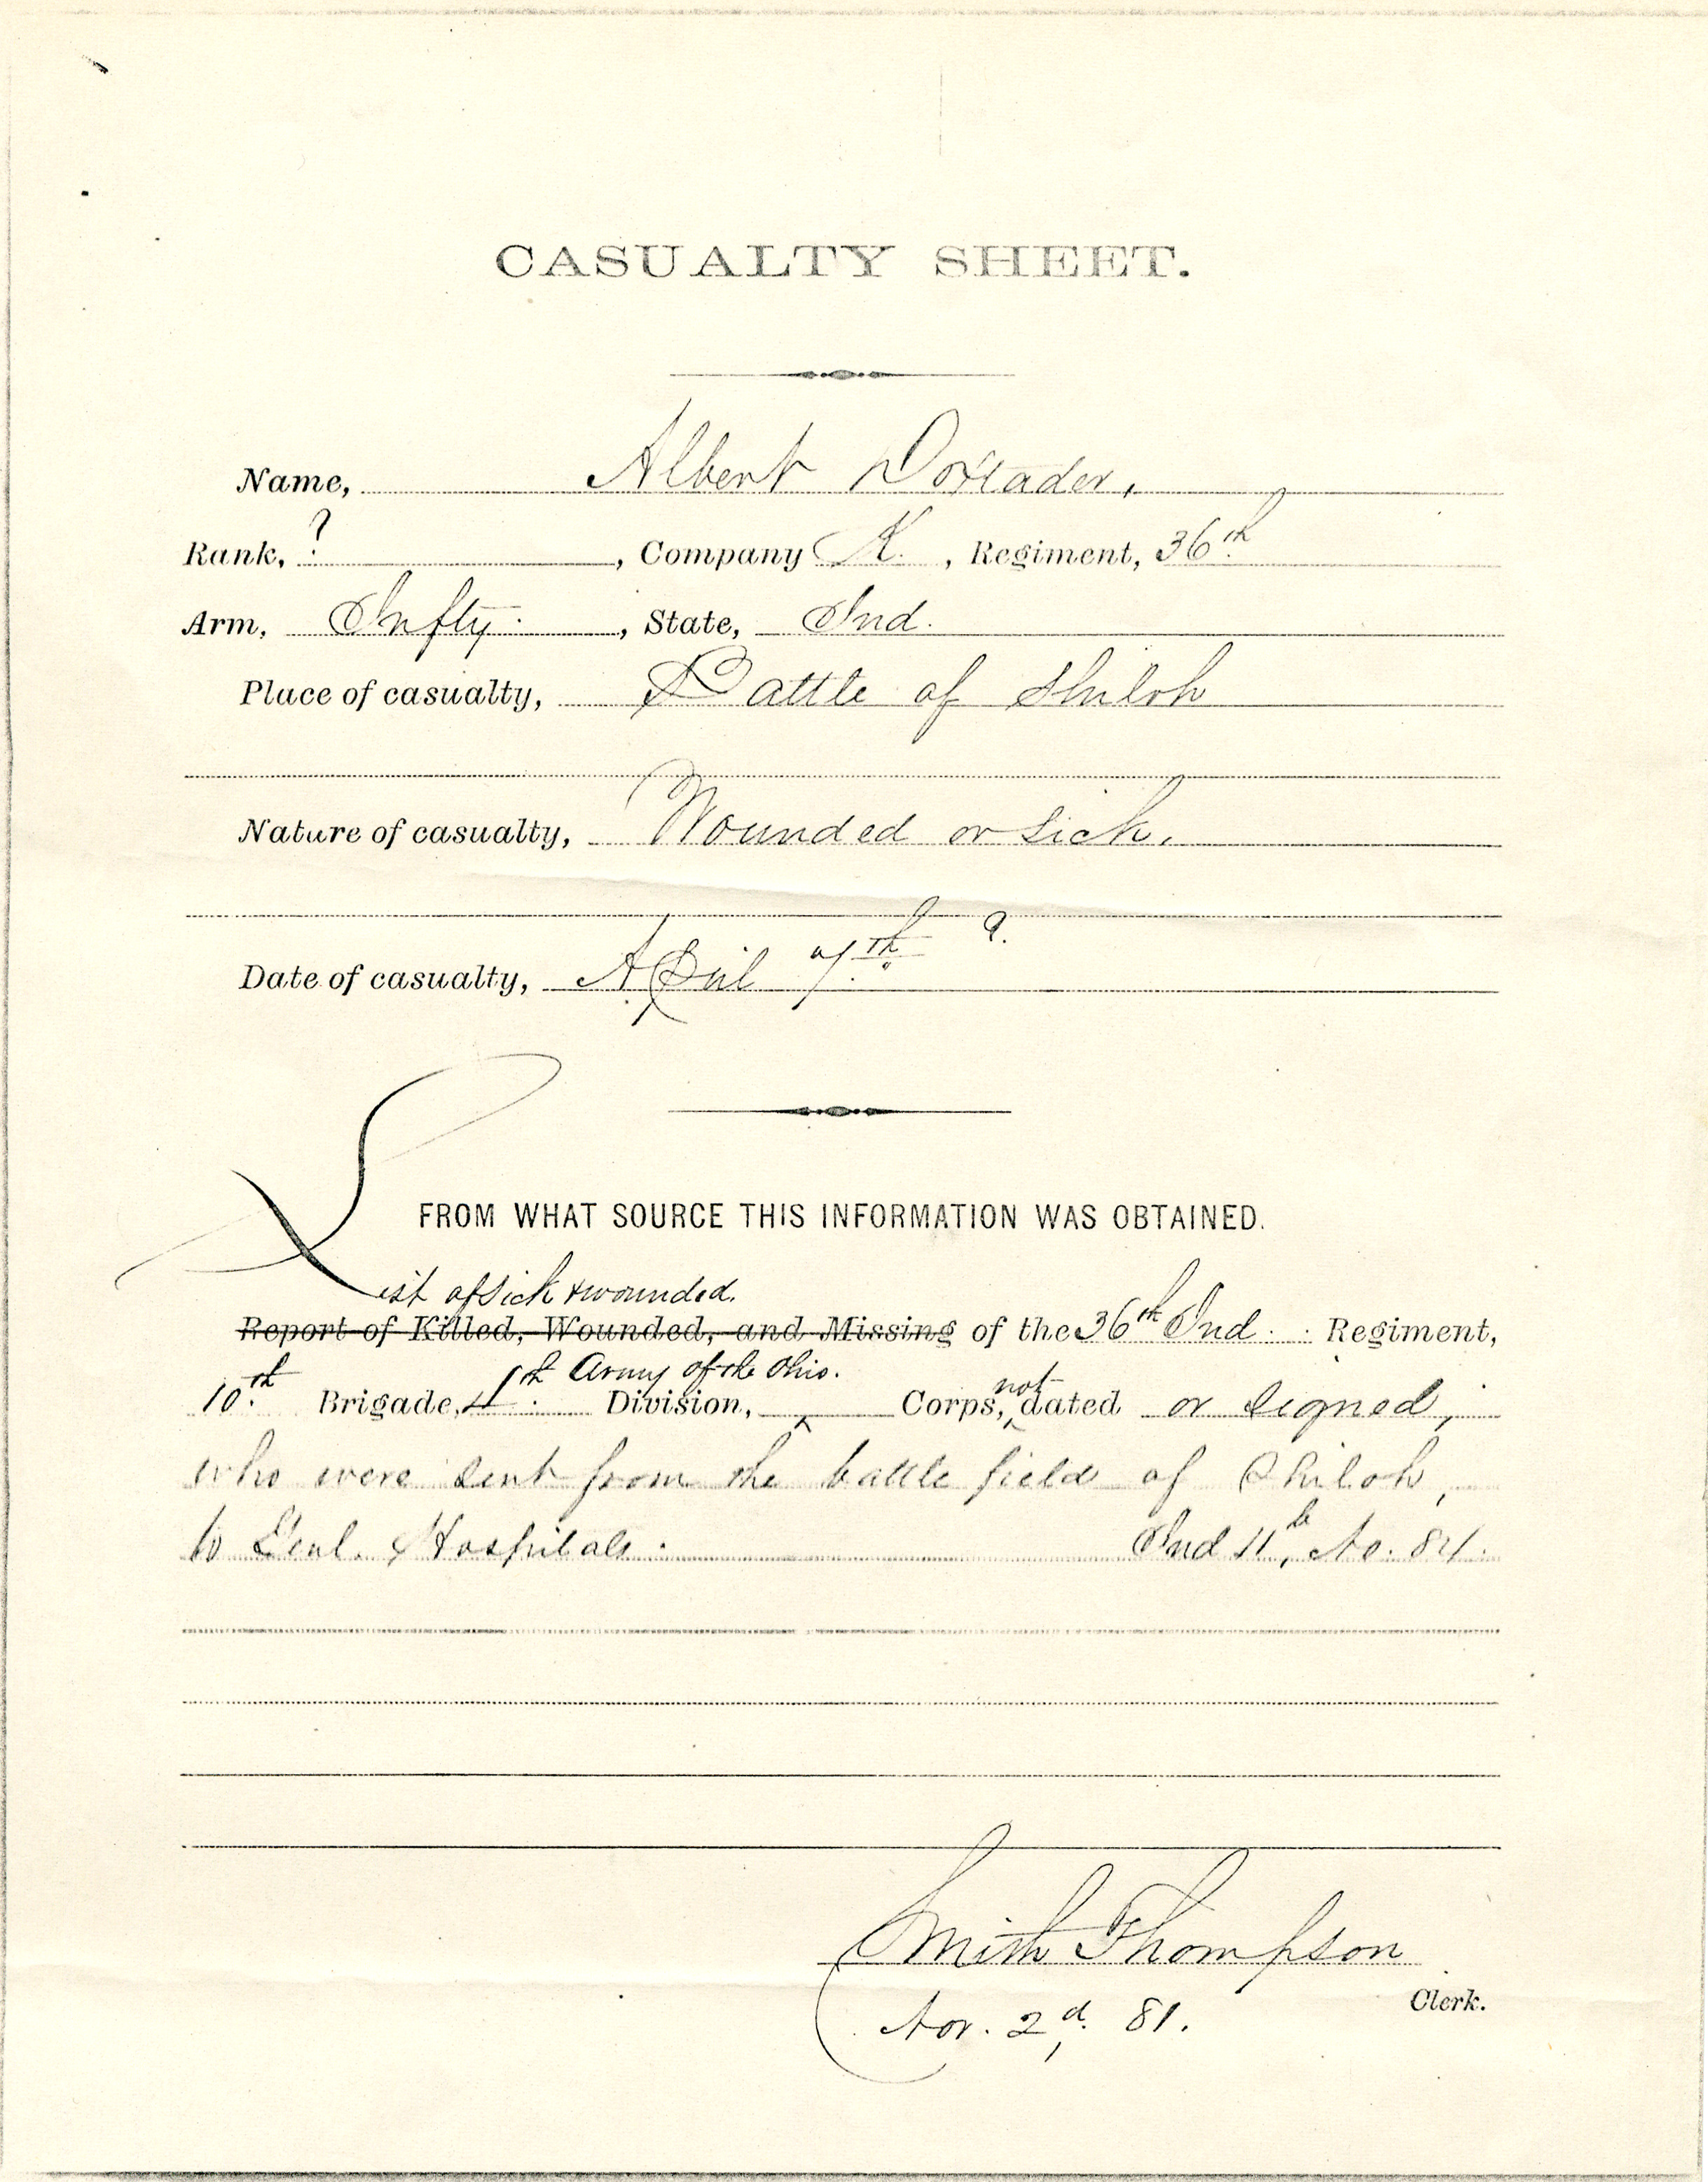 CASUALTY SHEET.
Name, Albert Doxtader,
Rank, ? , Company K. , Regiment, 36th
Arm, Infty. , State, Ind.
Place of casualty, Battle of Shiloh
Nature of casualty, Wounded or sick.
Date of casualty, April 7th ?.
FROM WHAT SOURCE THIS INFORMATION WAS OBTAINED.
List of sick & wounded.
Report of Killed, Wounded, and Missing of the 36th Ind. Regiment,
Army of the Ohio.
not
10th Brigade, 4th Division, Corps, dated or signed,
who were sent from the battle field of Shiloh,
to Genl. Hospitals. Ind 11, No. 84.
Smith Thompson
Clerk.
Nov. 2d, 81.